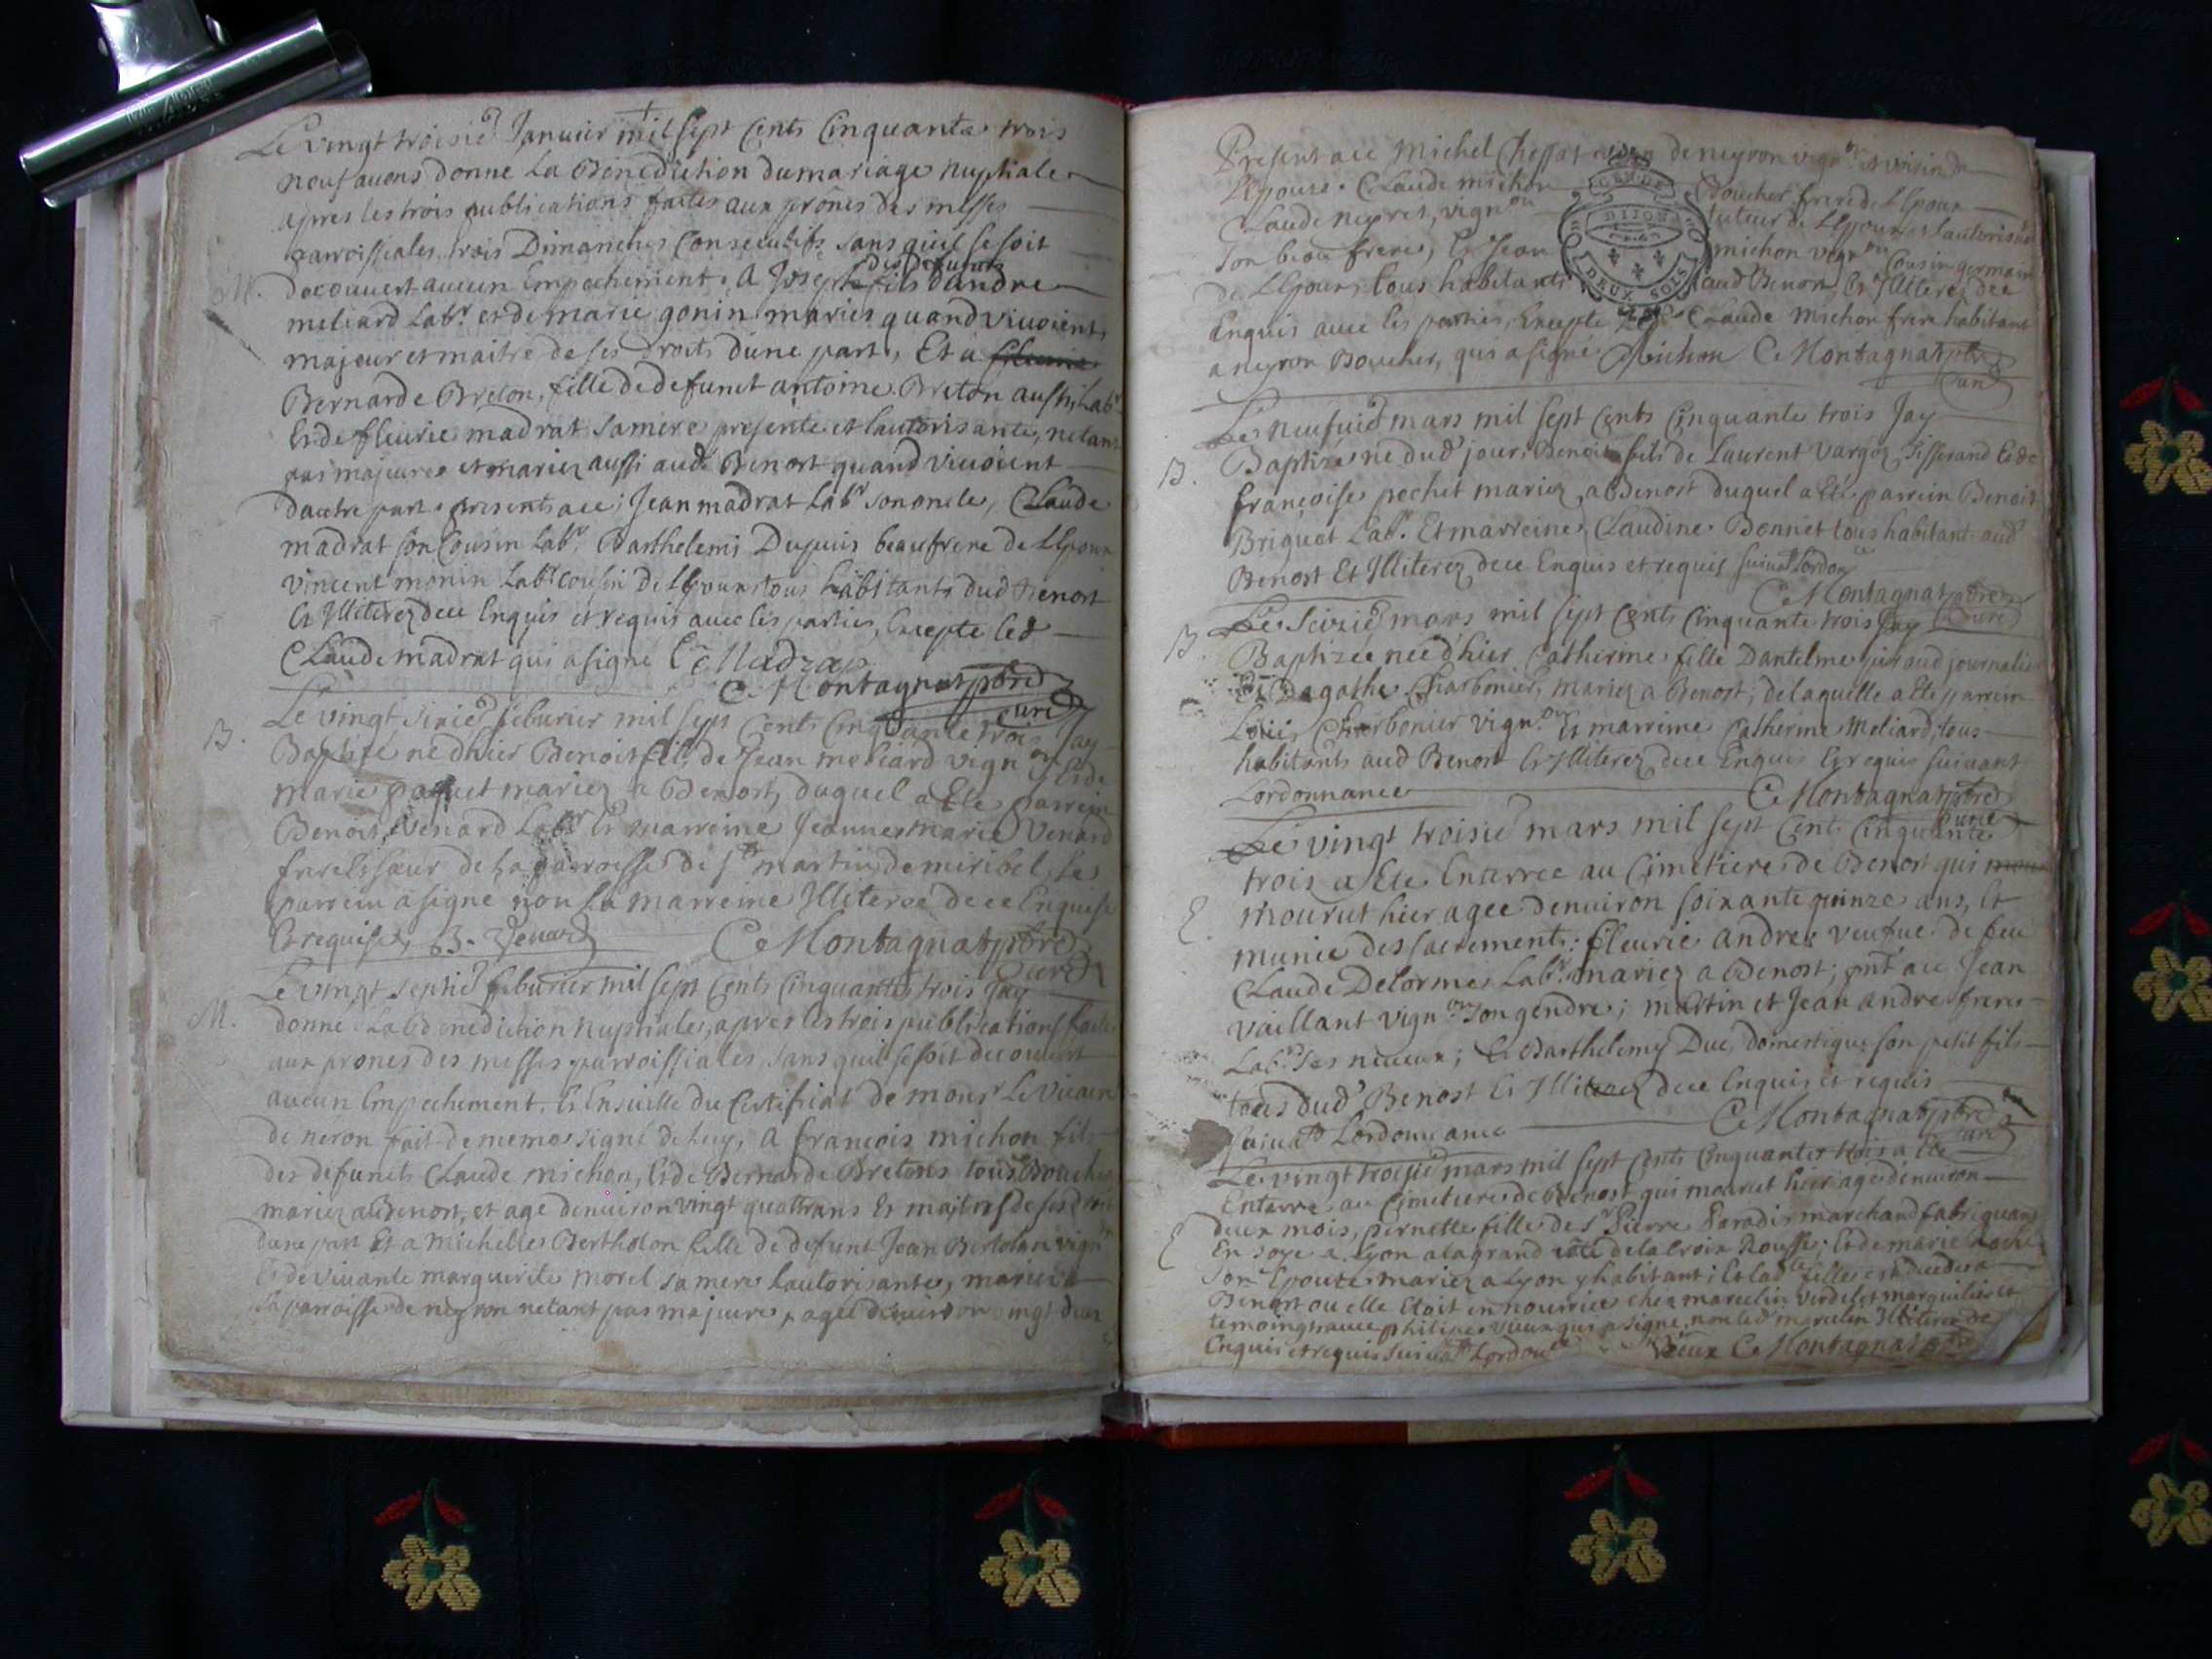 Le vingt troisie Januier mil sept Cents Cinquante trois
nous auons donne La Benediction du mariage nuptiale
apres les trois publications faites aux prônes des messes
parroissiales trois Dimanches Consecutifs sans quil se soit
M. decouuert aucun Empechement. A Joseph fils des defunts dandre
meliard Labr. et de marie gonin mariés quand viuoient,
majeur et maitre de ses droits dune part, Et a
Bernarde Breton, fille de defunct antoine Breton aussi Labr
Et de fleurie madrat sa mere presente et lautorisante, netant
pas majeure et mariez aussi aud Benost quand viuoient
dautre part. presents aec; Jean madrat Labr son oncle, Claude
madrat son Cousin Labr, Barthelemi Dupuis beaufrere de LEpoux
vincent monin Labr cousin de LEpoux tous habitants dud Benost
Et Illiterez dece Enquis et requis auec les parties, Excepte led
Claude madrat qui a signé Ce Madra
Ce Montagnat pbre
curé
B. Le vingt sixie feburier mil sept Cents Cinquante trois Jay
Baptisé ne dhier Benoit fils de Jean meliard vignon Et de
marie paquet mariez a Benost, duquel a Ete parrein
Benoit Venard Labr Et marreine Jeanne marie Venard
frere et sœur de La parroisse de St martin de miribel, Le
parrein a signé non La marreine Illiterée de ce Enquise
Et requise, B. Venard Ce Montagnat pbre
curé
M. Le vingt septie feburier mil sept Cents Cinquante trois Jay
donné La Benediction nuptiale, apres les trois publications faites
aux prones des messes parroissiales sans quil se soit decouuert
aucun Empechement, Et Ensuitte du Certificat de monsr Le Vicaire
de neron fait de meme signé de luy, A francois michon fils
des defuncts Claude michon, Et de Bernarde Breton tous Bouchers
mariez a Benost, et agé denuiron vingt quattr ans Et maitre de ses droits
dune part Et a Michelle Bertholon fille de defunt Jean Bertolon vignon
Et de viuante marguerite morel sa mere lautorisante, mariez a
la parroisse de neyron netant pas majeure, agee denuiron vingt deux
Present aec Michel Chessat de neyron vignon et voisin de
LEpouse. Claude michon Boucher frere de LEpoux
Claude neyret, vignon tuteur de LEpouse Lautorisant
son beau frere, Et Jean michon vignon Cousin germain
de LEpoux, tous habitants aud Benost Et Illiterez dece
Enquis auec les parties, Excepte Led. Claude michon frere habitant
a neyron Boucher, qui a signé Michon Ce Montagnat pbre
curé
GEN DE
DIJON
DEUX SOLS
Le neufuie mars mil sept Cents Cinquante trois Jay
B. Baptizé né dud jour, Benoit fils de Laurent vargoz, Tisserand Et de
françoise pochet mariez a Benost duquel a Eté parrein Benoit
Briquet Labr. Et marreine Claudine Bonnet tous habitant aud
Benost Et Illiterez dece Enquis et requis suiuat Lordonce
Ce Montagnat pbre
curé
B. Le Seizie mars mil sept Cents Cinquante trois Jay
Baptizée née dhier Catherine fille Dantelme giraud journalier
Et Dagathe Charbonier, mariez a Benost; de laquelle a Ete parrein
Louis Charbonier vignon Et marreine Catherine Meliard, tous
habitants aud Benost Et Illiterez dece Enquis Et requis suiuant
Lordonnance Ce Montagnat pbre
curé
Le vingt troisie mars mil sept Cents Cinquante
trois a Ete Enterrée au Cimetiere de Benost qui
E. mourut hier agee denuiron soixante quinze ans, Et
munie des sacrements: fleurie andre veufue de feu
Claude Delorme Labr. mariez a Benost; pnt aec Jean
vaillant vignon son gendre; martin et Jean andre freres
Labrs ses neueux; Et Barthelemy Duc, domestique son petit fils
tous dud Benost Et Illiterez dece Enquis et requis
suiuat Lordonnance Ce Montagnat pbre
curé
Le vingt troisie mars mil sept Cents Cinquante trois a Ete
Enterrée au Cimetiere de Benost qui mourut hier agée denuiron
E deux mois, pernette fille de Sr Pierre Paradis marchand fabriquant
En soye a Lyon a la grand cote de la Croix Rousse; Et de marie
son Epouse mariez a Lyon y habitant; Et lad fille est decedée a
Benost ou elle Etoit en nourrice chez marcelin verdelet marguilier et
temoing auec philipe vieux qui a signé, non led marcelin Illiteré de ce
Enquis et requis suiuat Lordonce Vieux Ce Montagnat pbre